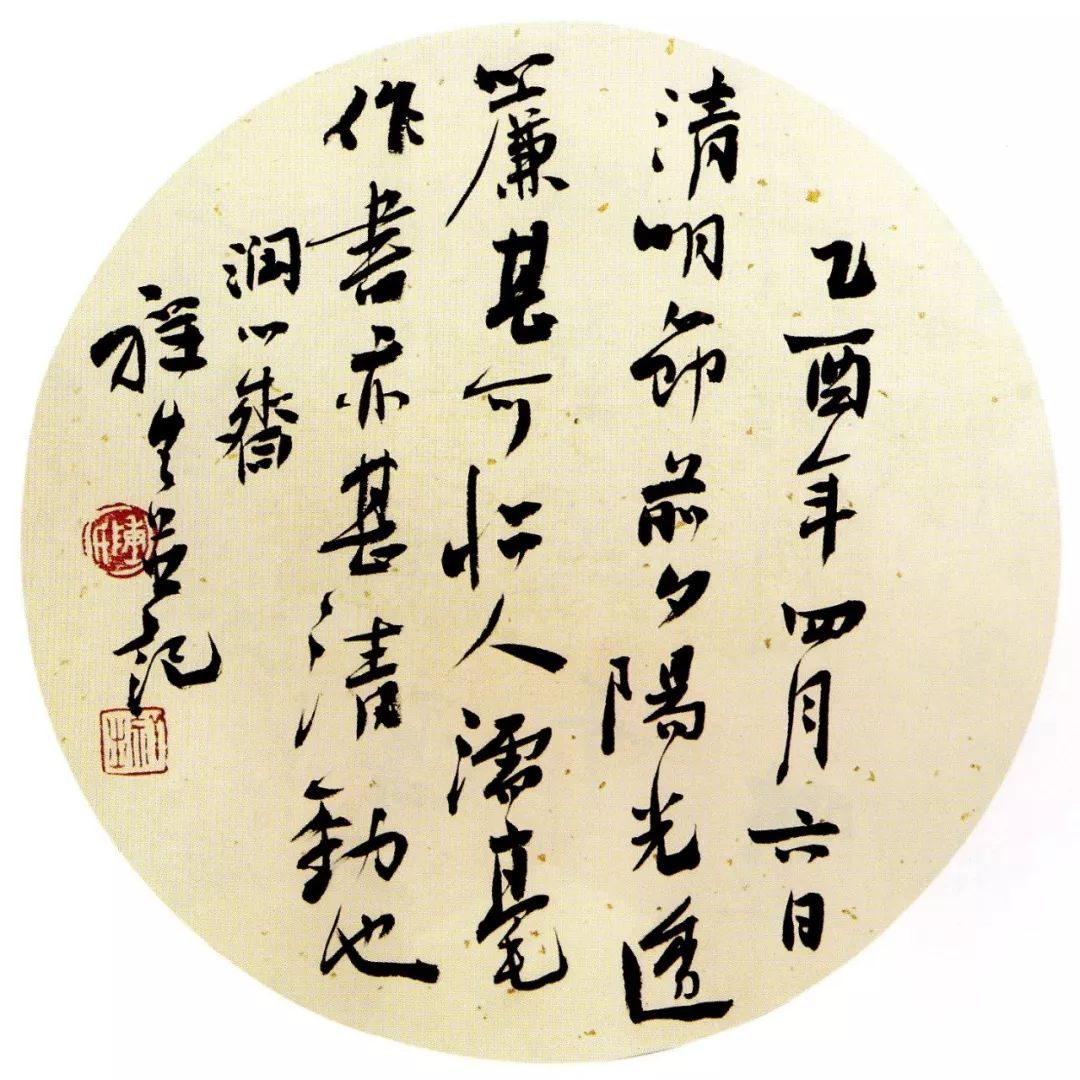 乙酉年四月六日
清明節前夕陽光透
簾甚可人濡毫
作書亦甚清勁也
润心齋
生記